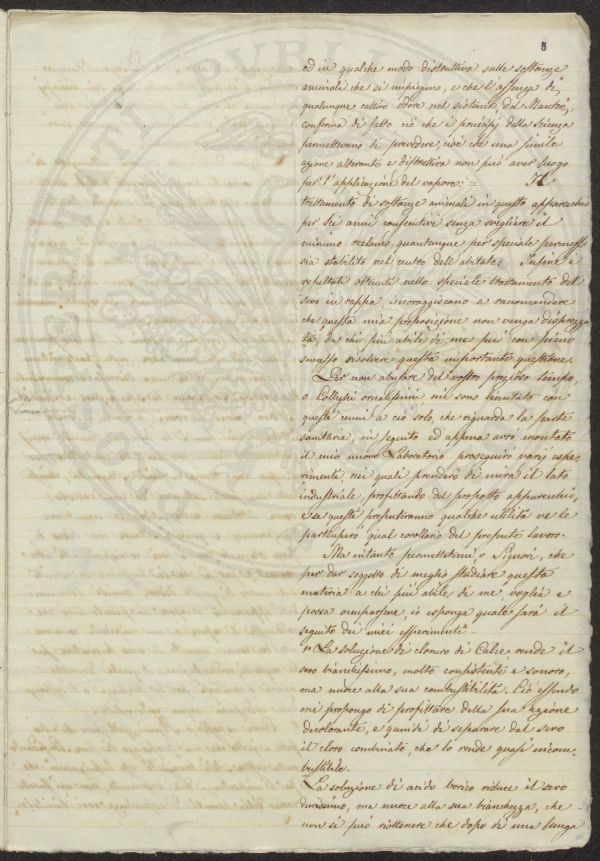 5
ed in qualche modo distruttiva sulle sostanze
animali che si impiegano, e che l'assenza di
qualunque cattivo odore nel sistema del
conferma di fatto ciò che i principj della Scienza
permettevano di prevedere, cioè che una simile
azione alterante e distruttiva non può aver luogo
per l'applicazione del vapore; = Il
trattamento di sostanze animali in questo apparecchio
per sei anni consecutivi senza svegliare il
minimo reclamo, quantunque per speciale permesso
sia stabilito nel centro dell'abitato; Infine i
resultati ottenuti nello speciale trattamento del
sevo in rappa, incoraggiscano a raccomandare
che questa mia proposizione non venga disprezza
ta, da chi più abile di me può con pieno
successo risolvere questa importante questione.
Per non abusare del vostro prezioso tempo,
o Colleghi ornatissimi, mi sono limitato con
questi cenni a ciò solo, che riguarda la parte
sanitaria, in seguito ed appena avrò montato
il mio nuovo Laboratorio proseguirò varj espe-
rimenti, nei quali prenderò di mira il lato
industriale, profittando del proposto apparecchio,
e se questi presenteranno qualche utilità ve le
parteciperò qual corollario del presente lavoro.
Ma intanto permettetemi, o Signori, che
per dar soggetto di meglio studiare questa
materia a chi più abile di me, voglia e
possa occuparsene, io esponga quale sarà il
seguito dei miei esperimenti.
1° La soluzione di cloruro di Calce rende il
sevo bianchissimo, molto consistente e sonoro,
ma nuoce alla sua combustibilità. Ciò essendo
mi propongo di profittare della sua azione
decolorante, e quindi di separare dal sevo
il cloro combinato, che lo rende quasi incom-
bustibile.
La soluzione di acido borico riduce il sevo
durissimo, ma nuoce alla sua bianchezza, che
non si può riottenere che dopo di una lunga